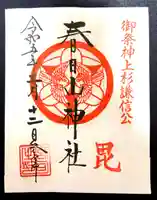 御祭神上杉謙信公
毘
春日山神社
令和五年二月十二日参拝